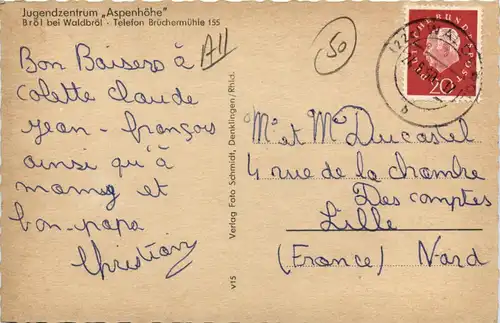 Jugendzentrum „Aspenhöhe"
Bröl bei Waldbröl · Telefon Brüchermühle 155
All
50
Bon Baisers à
colette claude
jean-françois
ainsi qu'à
mamy et
bon-papa
Christian
Verlag Foto Schmidt, Denklingen/Rhld.
V15
DEUTSCHE BUNDESPOST
20
M et Me Ducastel
4 rue de la chambre
Des comptes
Lille
(France) Nord